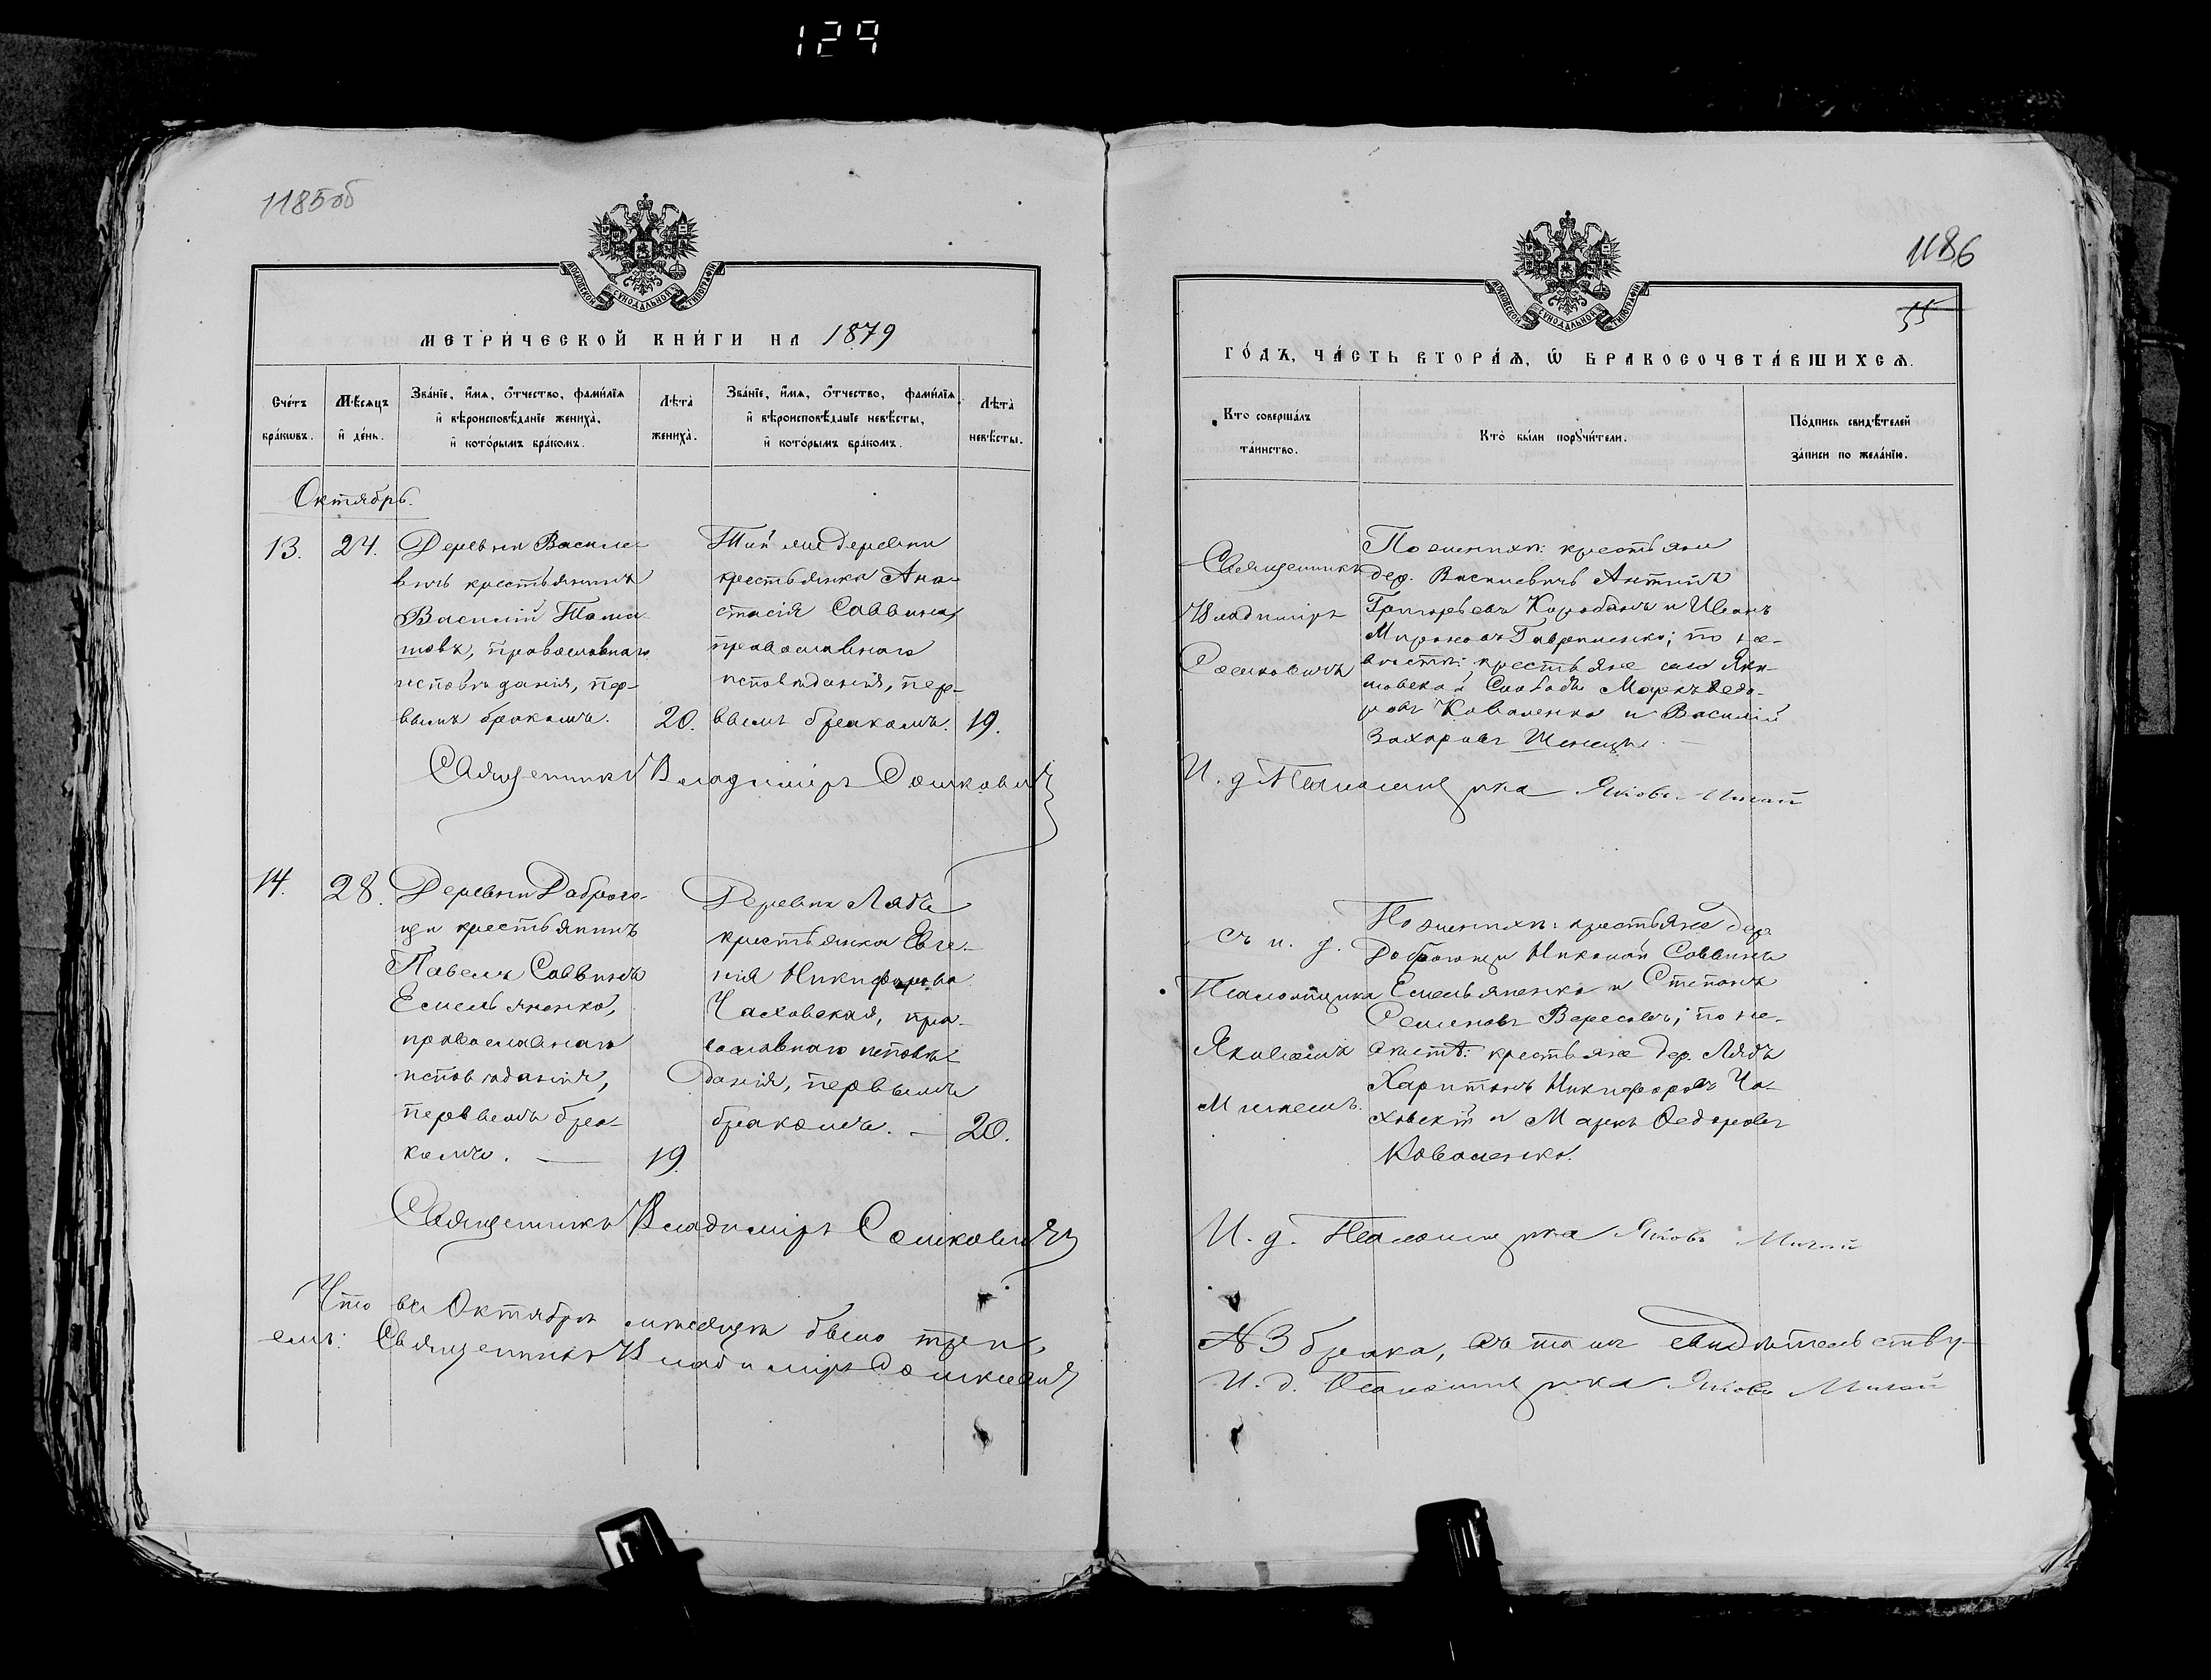 129
1185об
МОСКОВСКОЙ СѴНОДАЛЬНОЙ ТИПОГРАФІИ
МЕТРИ́ЧЕСКОЙ КНИ́ГИ НА 1879
Сче́тъ бра́кωвъ.
Мѣ́сяцъ и҆ де́нь.
Зва́нїе, и҆́мѧ, ѻ҆́тчество, фами́лїѧ и҆ вѣроисповѣ́данїе жениха̀, и҆ кото́рымъ бра́комъ.
Лѣ́та̀ жениха̀.
Зва́нїе, и҆́мѧ, ѻ҆́тчество, фами́лїѧ и҆ вѣроисповѣ́данїе невѣ́сты, и҆ кото́рымъ бра́комъ.
Лѣ́та̀ невѣ́сты.
Октябрь.
13.
24.
Деревни Василе-
вичъ крестьянинъ
Василій
православнаго
исповѣданія, пер-
вымъ бракомъ.
20.
Той же деревни
крестьянка Ана-
стасія Саввина,
православнаго
исповѣданія, пер-
вымъ бракомъ.
19.
Священникъ Владиміръ Сошковичъ
14.
28.
Деревни Доброго-
щи крестьянинъ
Павелъ Саввинъ
Емельяненко,
православнаго
исповѣданія,
первымъ бра-
комъ.
19.
Деревни Лядъ
крестьянка Евге-
нія Никифорова
Чаховская, пра-
вославнаго исповѣ-
данія, первымъ
бракомъ.
20.
Священникъ Владиміръ Сошковичъ
Что въ Октябрѣ мѣсяцѣ было три,
емъ: Священникъ Владиміръ Сошковичъ
1186
55
МОСКОВСКОЙ СѴНОДАЛЬНОЙ ТИПОГРАФІИ
ГО́ДЪ, ЧА́СТЬ ВТОРА́Ѧ, Ѽ БРАКОСОЧЕТА́ВШИХСѦ.
Кто соверша́лъ та́инство.
Кто̀ бы́ли порꙋчи́тели.
По́дпись свидѣ́телей за́писи по жела́нїю.
Священникъ
Владиміръ
Сошковичъ
По женихѣ: крестьяне
дер. Василевичъ Антипъ
Григорьевъ и Иванъ
Мироновъ Гавриленко; по не-
вѣстѣ: крестьяне села Яки-
мовской Слободы Маркъ Ѳедо-
ровъ Коваленко и Василій
Захаровъ
И. д. Псаломщика Яковъ
съ и. д.
Псаломщика
Яковомъ
По женихѣ: крестьяне дер.
Доброгощи Николай Саввинъ
Емельяненко и Степанъ
Семеновъ Вересовъ; по не-
вѣстѣ: крестьяне дер. Лядъ
Харитонъ Никифоровъ Ча-
ховскій и Маркъ Ѳедоровъ
Коваленко.
И. д. Псаломщика Яковъ
№ 3 брака, въ томъ свидѣтельству-
И. д. Псаломщика Яковъ